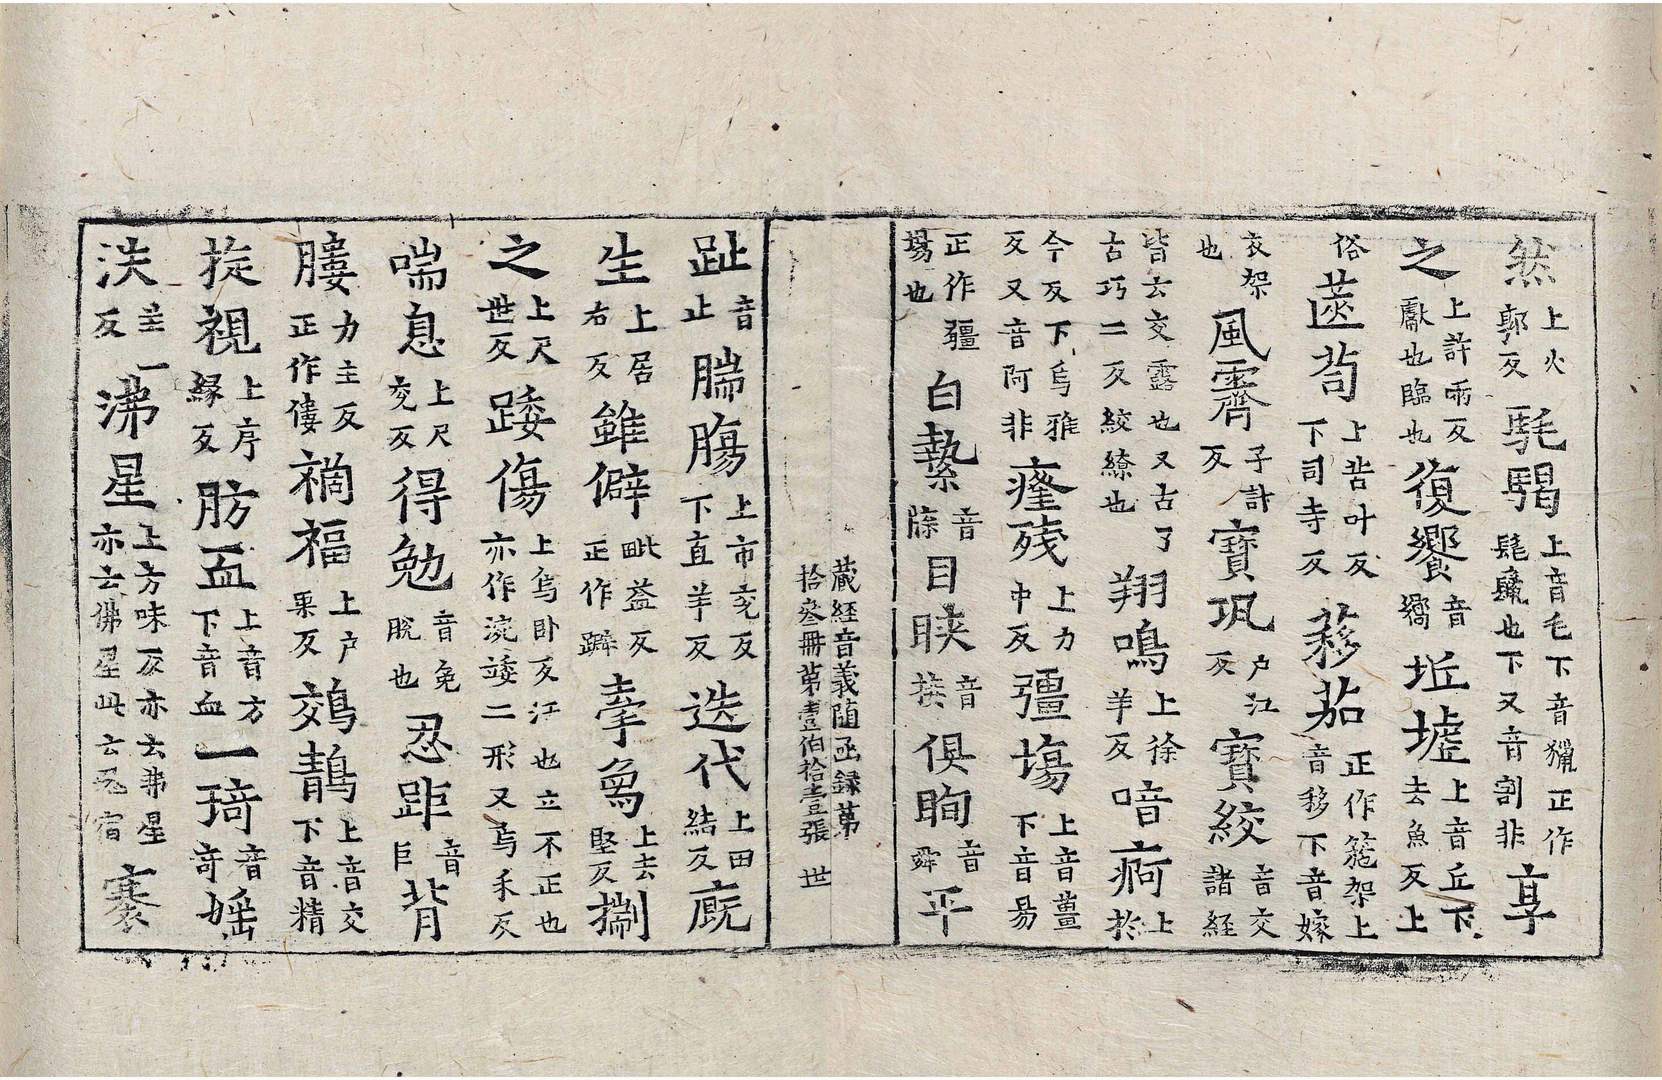 然上火郭反髦騔上音毛下音獵正作髦鬣也下又音割非享
之上許兩反獻也臨也復饗音嚮坵墟上音丘下去魚反上
俗蓤苟上苦叶反下司寺反蓩茄正作箷架上音移下音嫁
衣架也風霽子計反寶巩户江反寶絞音交諸經
皆云交露也又古了古巧二反絞繚也翔鳴上徐羊反喑痾上於
今反下烏雅反又音阿非瘞殘上力中反彊塲上音薑下音易
正作疆場也白蟄音除目䀹音𢬵俱眴音舜平
藏經音義随函録第
拾叄冊第壹伯拾壹張 世
趾音止腨腸上市兖反下直羊反迭代上田結反廐
生上居右反雖僻毗益反正作躃牽㑹上去堅反捌
之上尺世反踒傷上烏卧反亦作涴㟪二形又烏禾反江也立不正也
喘息上尺兖反得勉音免脫也忍距音巨背
膢力主反正作僂裯福上户果反鵁鶄上音交下音精
㨱視上序緣反肪𧖧上音方下音血一琦音奇媱
浂主一反沸星上方味反亦云弗星亦云佛星此云鬼宿褰